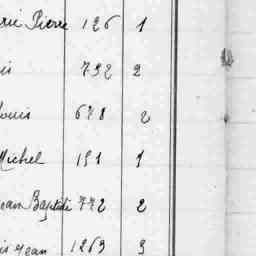 rie Pierre 126 1
is 732 2
ouis 678 2
Michel 151 1
ean Baptiste 772 2
is Jean 1263 3